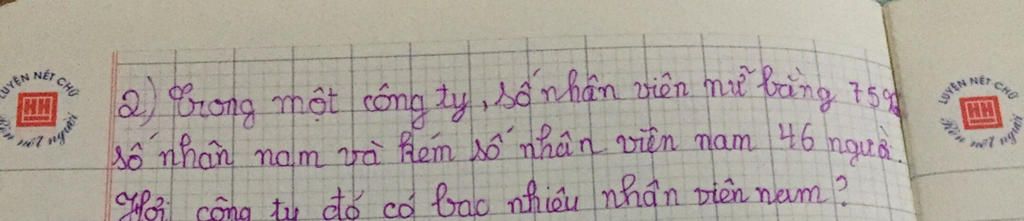 LUYỆN NÉT CHỮ
HH
nết người
2) Trong một công ty, số nhân viên nữ bằng 75%
số nhân nam và kém số nhân viên nam 46 người.
Hỏi công ty đó có bao nhiêu nhân viên nam?
LUYỆN NÉT CHỮ
HH
nết người